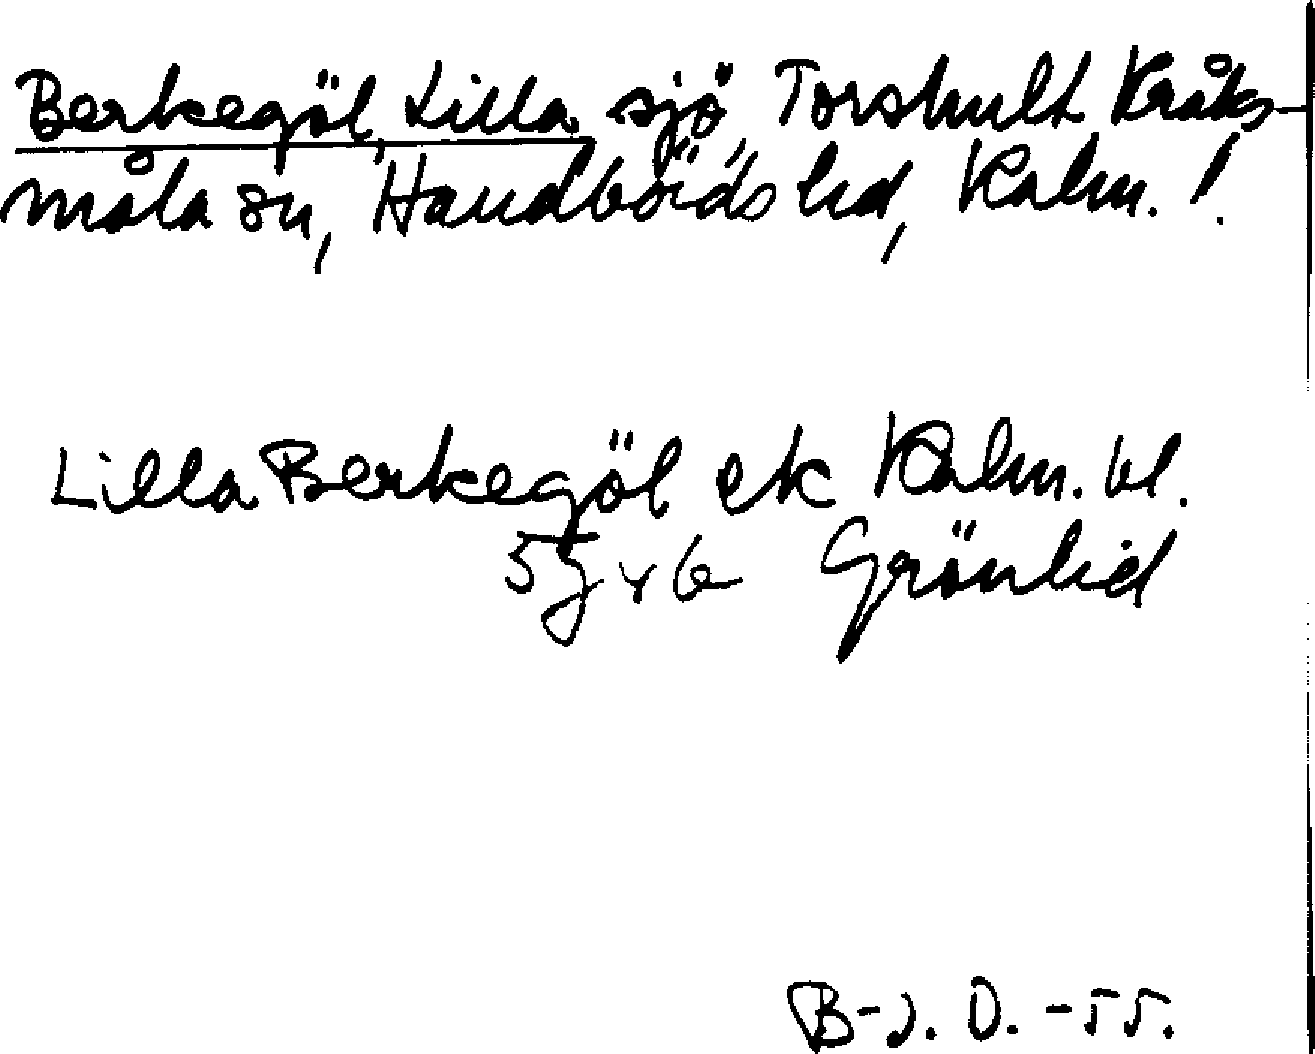 Berkegöl, Lilla sjö, Torshult Kråks-
måla sn, Handbörds hd, Kalm. l.
Lilla Berkegöl ek Kalm. bl.
5g Grönlid
B-J. O. -55.